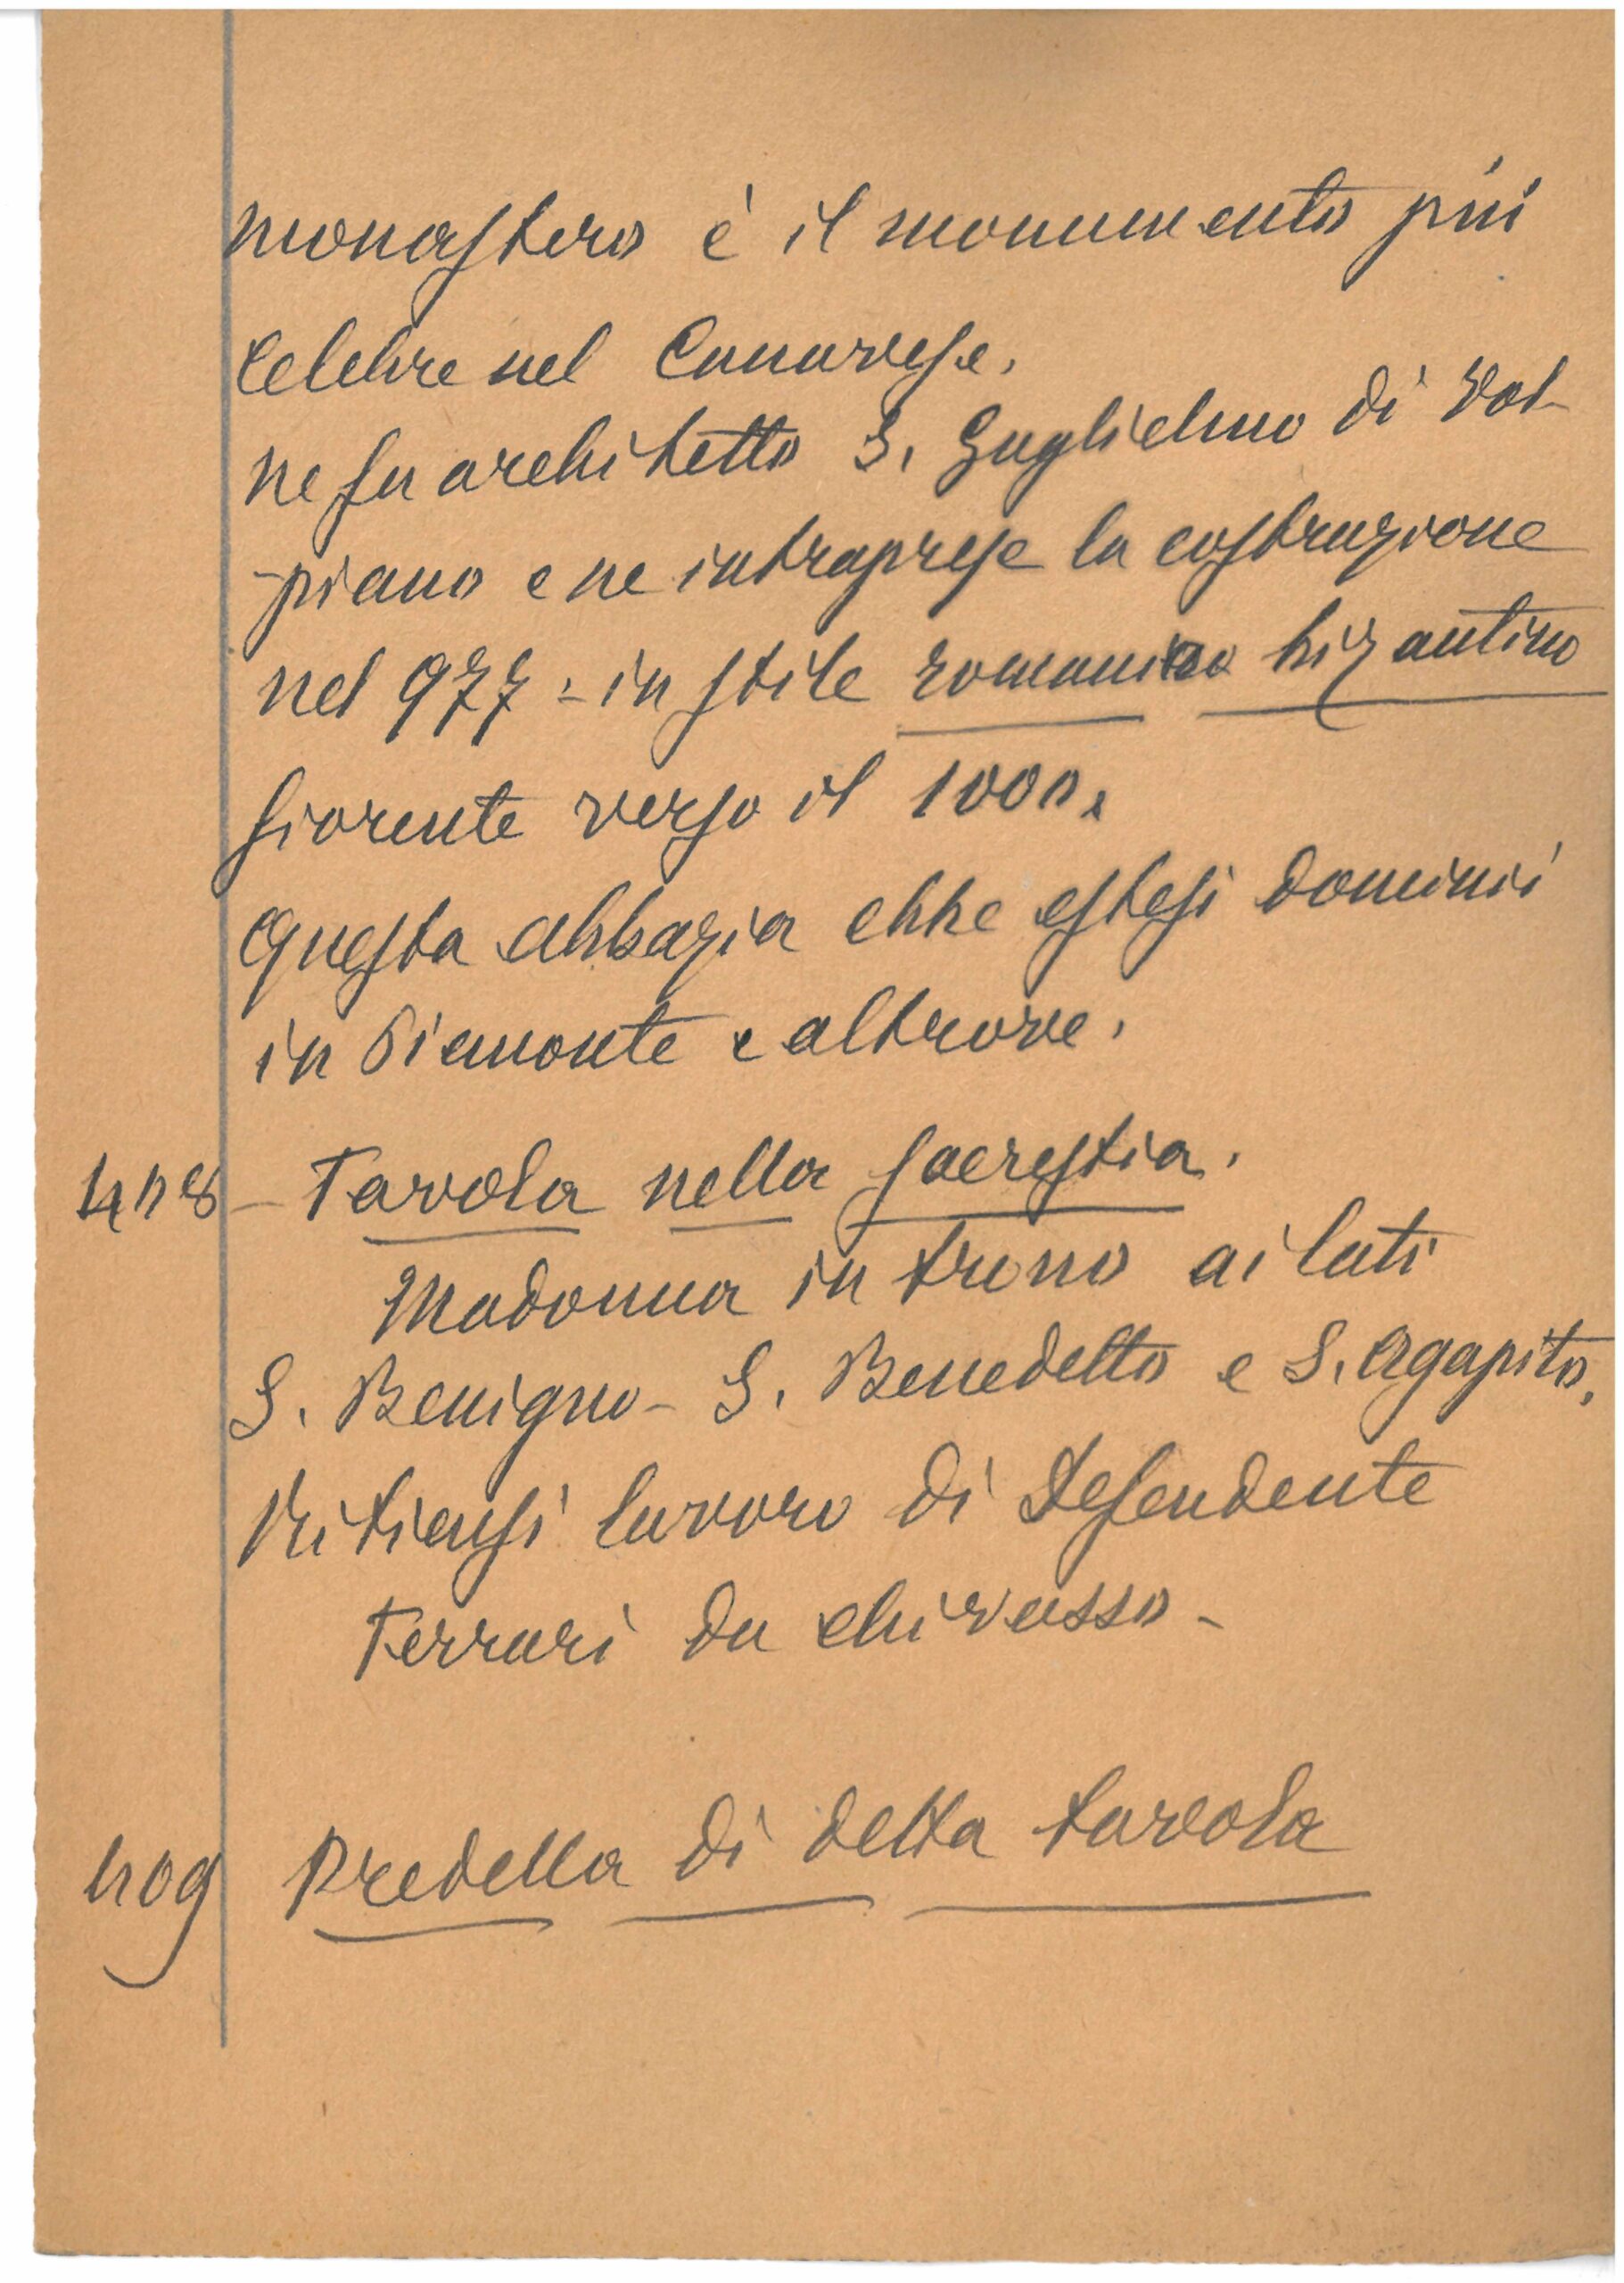 monastero è il monumento più
celebre nel Canavese.
ne fu architetto S. Guglielmo di Vol-
-piano e ne intraprese la costruzione
nel 977 - in stile romanico bizantino
fiorente verso il 1000.
Questa abbazia ebbe estesi dominii
in Piemonte e altrove.
408 - Tavola nella sacrestia.
Madonna in trono ai lati
S. Benigno - S. Benedetto e S. Agapito.
Ritiensi lavoro di Defendente
Ferrari da Chivasso -
409 Predella di detta tavola